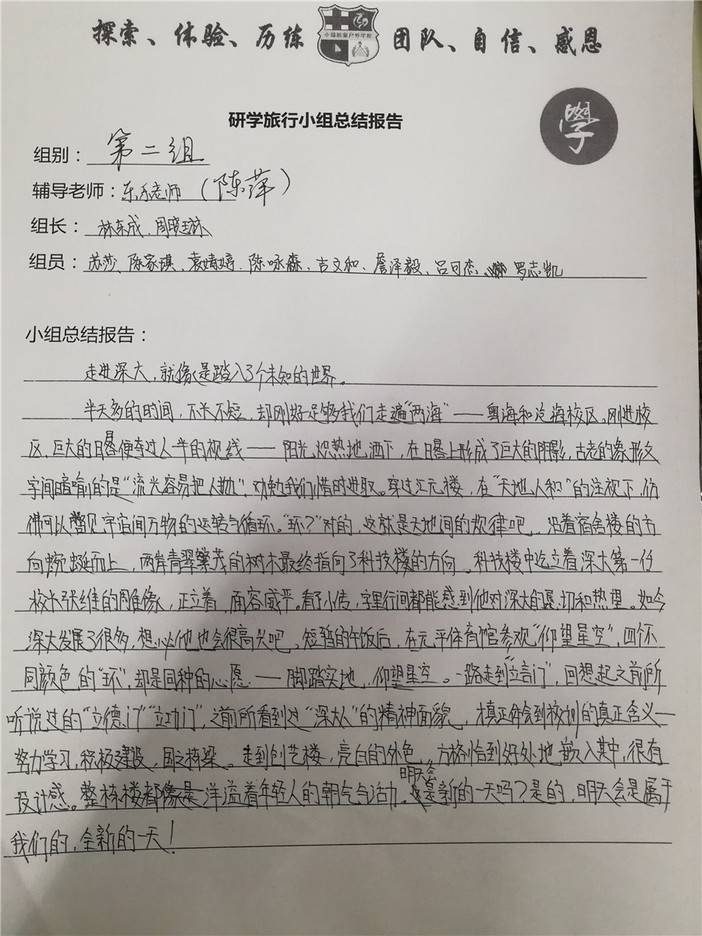 探索、体验、历练 团队、自信、感恩
學
研学旅行小组总结报告
组别：第二组
辅导老师：乐乐老师（陈萍）
组长：林东成、周晓琳
组员：苏莎、陈家琪、袁婧婷、陈咏淼、古文和、詹泽毅、吕日杰、罗志凯
小组总结报告：
走进深大，就像是踏入了个未知的世界。
半天多的时间，不长不短，却刚好足够我们走遍“两海”——粤海和沧海校区。刚进校
区，巨大的日晷便夺过人年的视线——阳光炽热地洒下，在日晷上形成了巨大的阴影，古老的象形文
字间暗喻的是“流光容易把人抛”，劝勉我们惜时进取。穿过汇元楼，在“天地人和”的注视下，仿
佛可以瞥见宇宙间万物的运转与循环。“环？”对的，这就是天地间的规律吧。沿着宿舍楼的方
向蜿蜒而上，两岸青翠繁茂的树木最终指向了科技楼的方向。科技楼中屹立着深大第一任
校长张维的雕像，正立着，面容威严。看了小传，字里行间都能感到他对深大的恳切和热望。如今
深大发展了很多，想必他也会很高兴吧。短暂的午饭后，在元平体育馆参观“仰望星空”，四个不
同颜色的“环”，却是同种的心愿——脚踏实地，仰望星空。一路走到“立言门”，回想起之前所
听说过的“立德门”“立功门”，之前所看到过“深大人”的精神面貌，才真正体会到校训的真正含义—
努力学习，积极建设，国之栋梁。走到创艺楼，亮白的外色，方格恰到好处地嵌入其中，很有
设计感。整栋楼都像是洋溢着年轻人的朝气与活力。明天会是新的一天吗？是的，明天会是属于
我们的，全新的一天！